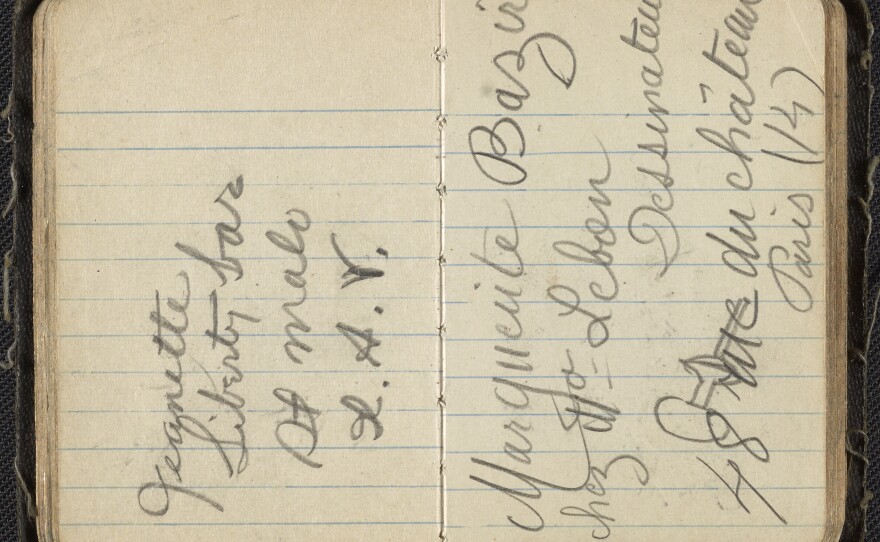 Jeannette
Liberty bar
St malo
Marguerite Bazi
chez Mo- Lebon
Dessinateu
48 Rue du château
Paris (14)